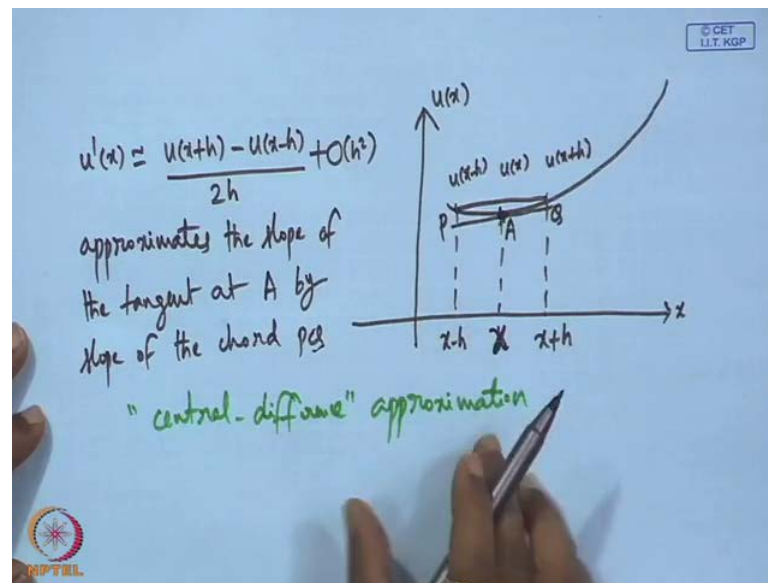 © CET
I.I.T. KGP
u'(x) ≃ u(x+h) - u(x-h) / 2h + O(h²)
approximates the slope of
the tangent at A by
slope of the chord PQ
"central-diffrence" approximation
u(x)
u(x-h) u(x) u(x+h)
P A Q
x-h x x+h x
NPTEL